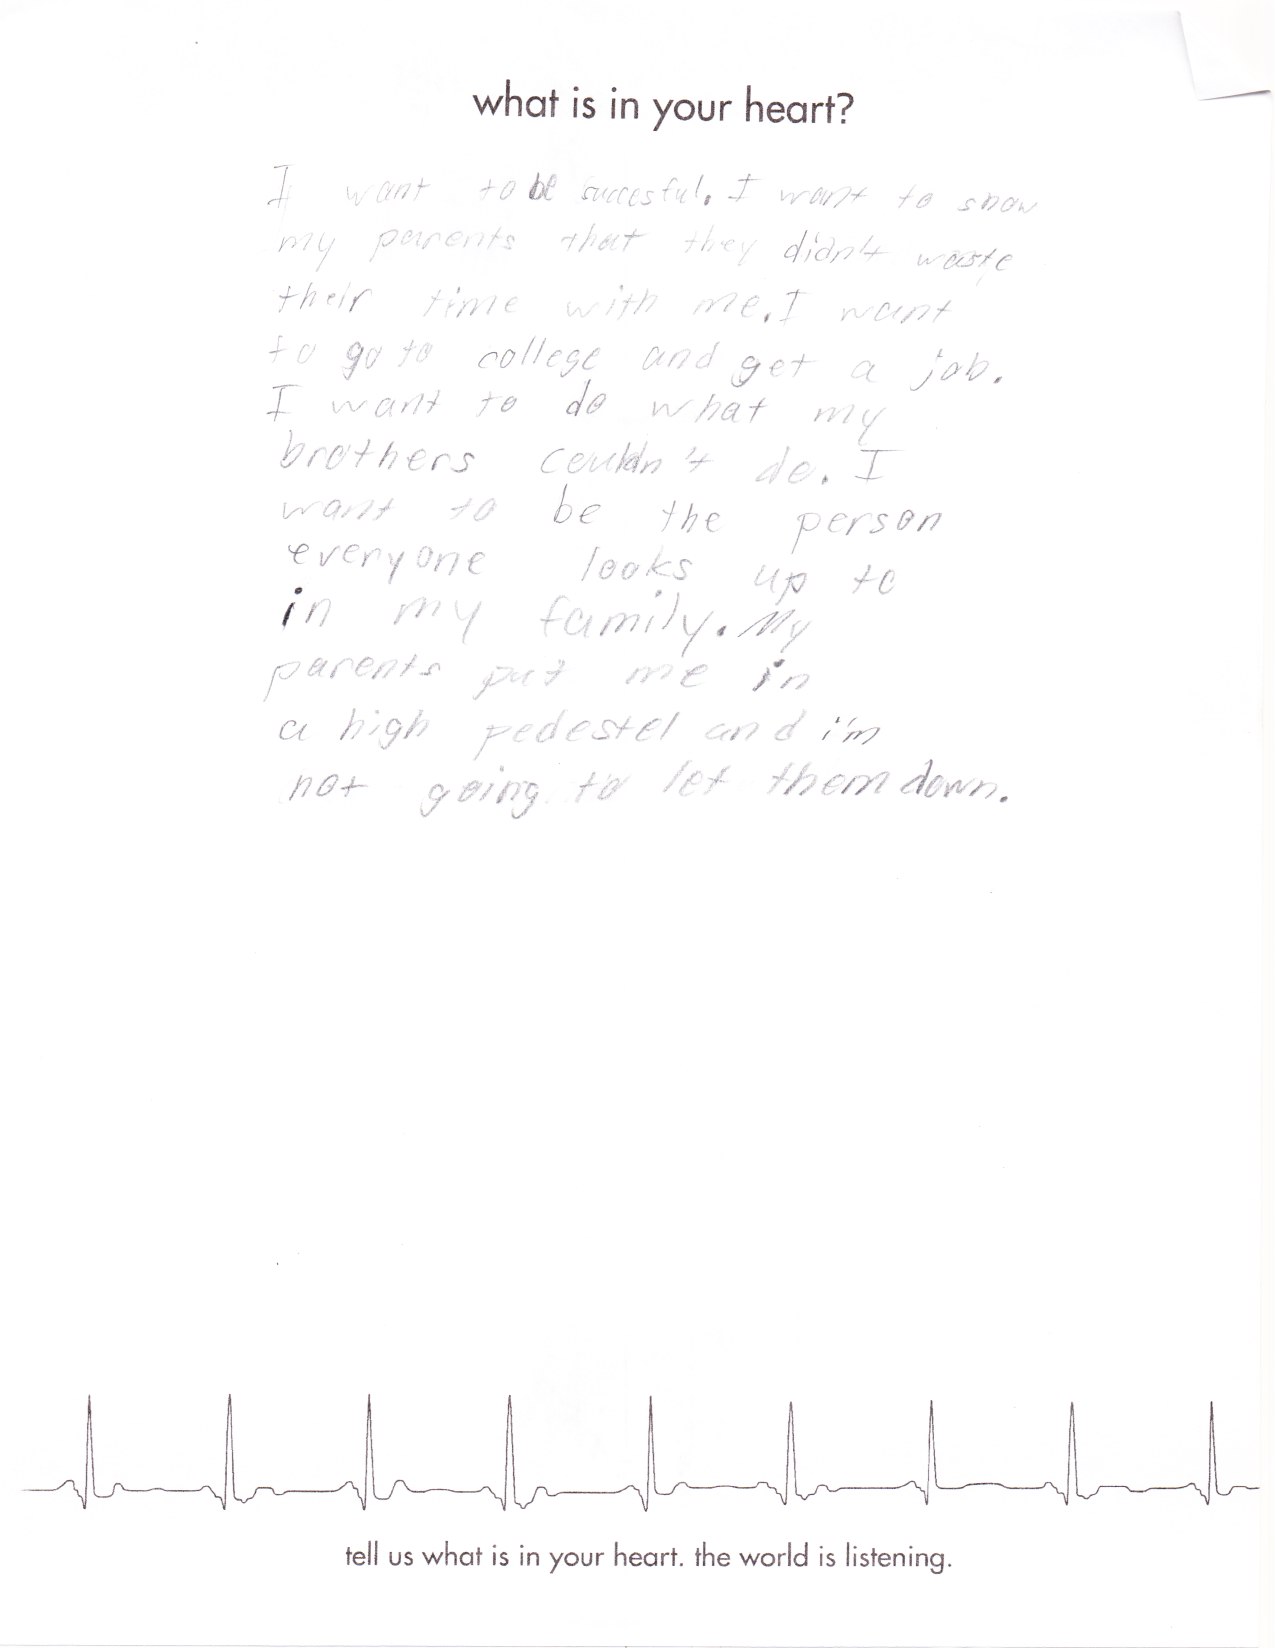 what is in your heart?
I want to be succesful. I want to show
my parents that they didn't waste
their time with me. I want
to go to college and get a job.
I want to do what my
brothers couldn't do. I
want to be the person
everyone looks up to
in my family. My
parents put me in
a high pedestel and i'm
not going to let them down.
tell us what is in your heart. the world is listening.